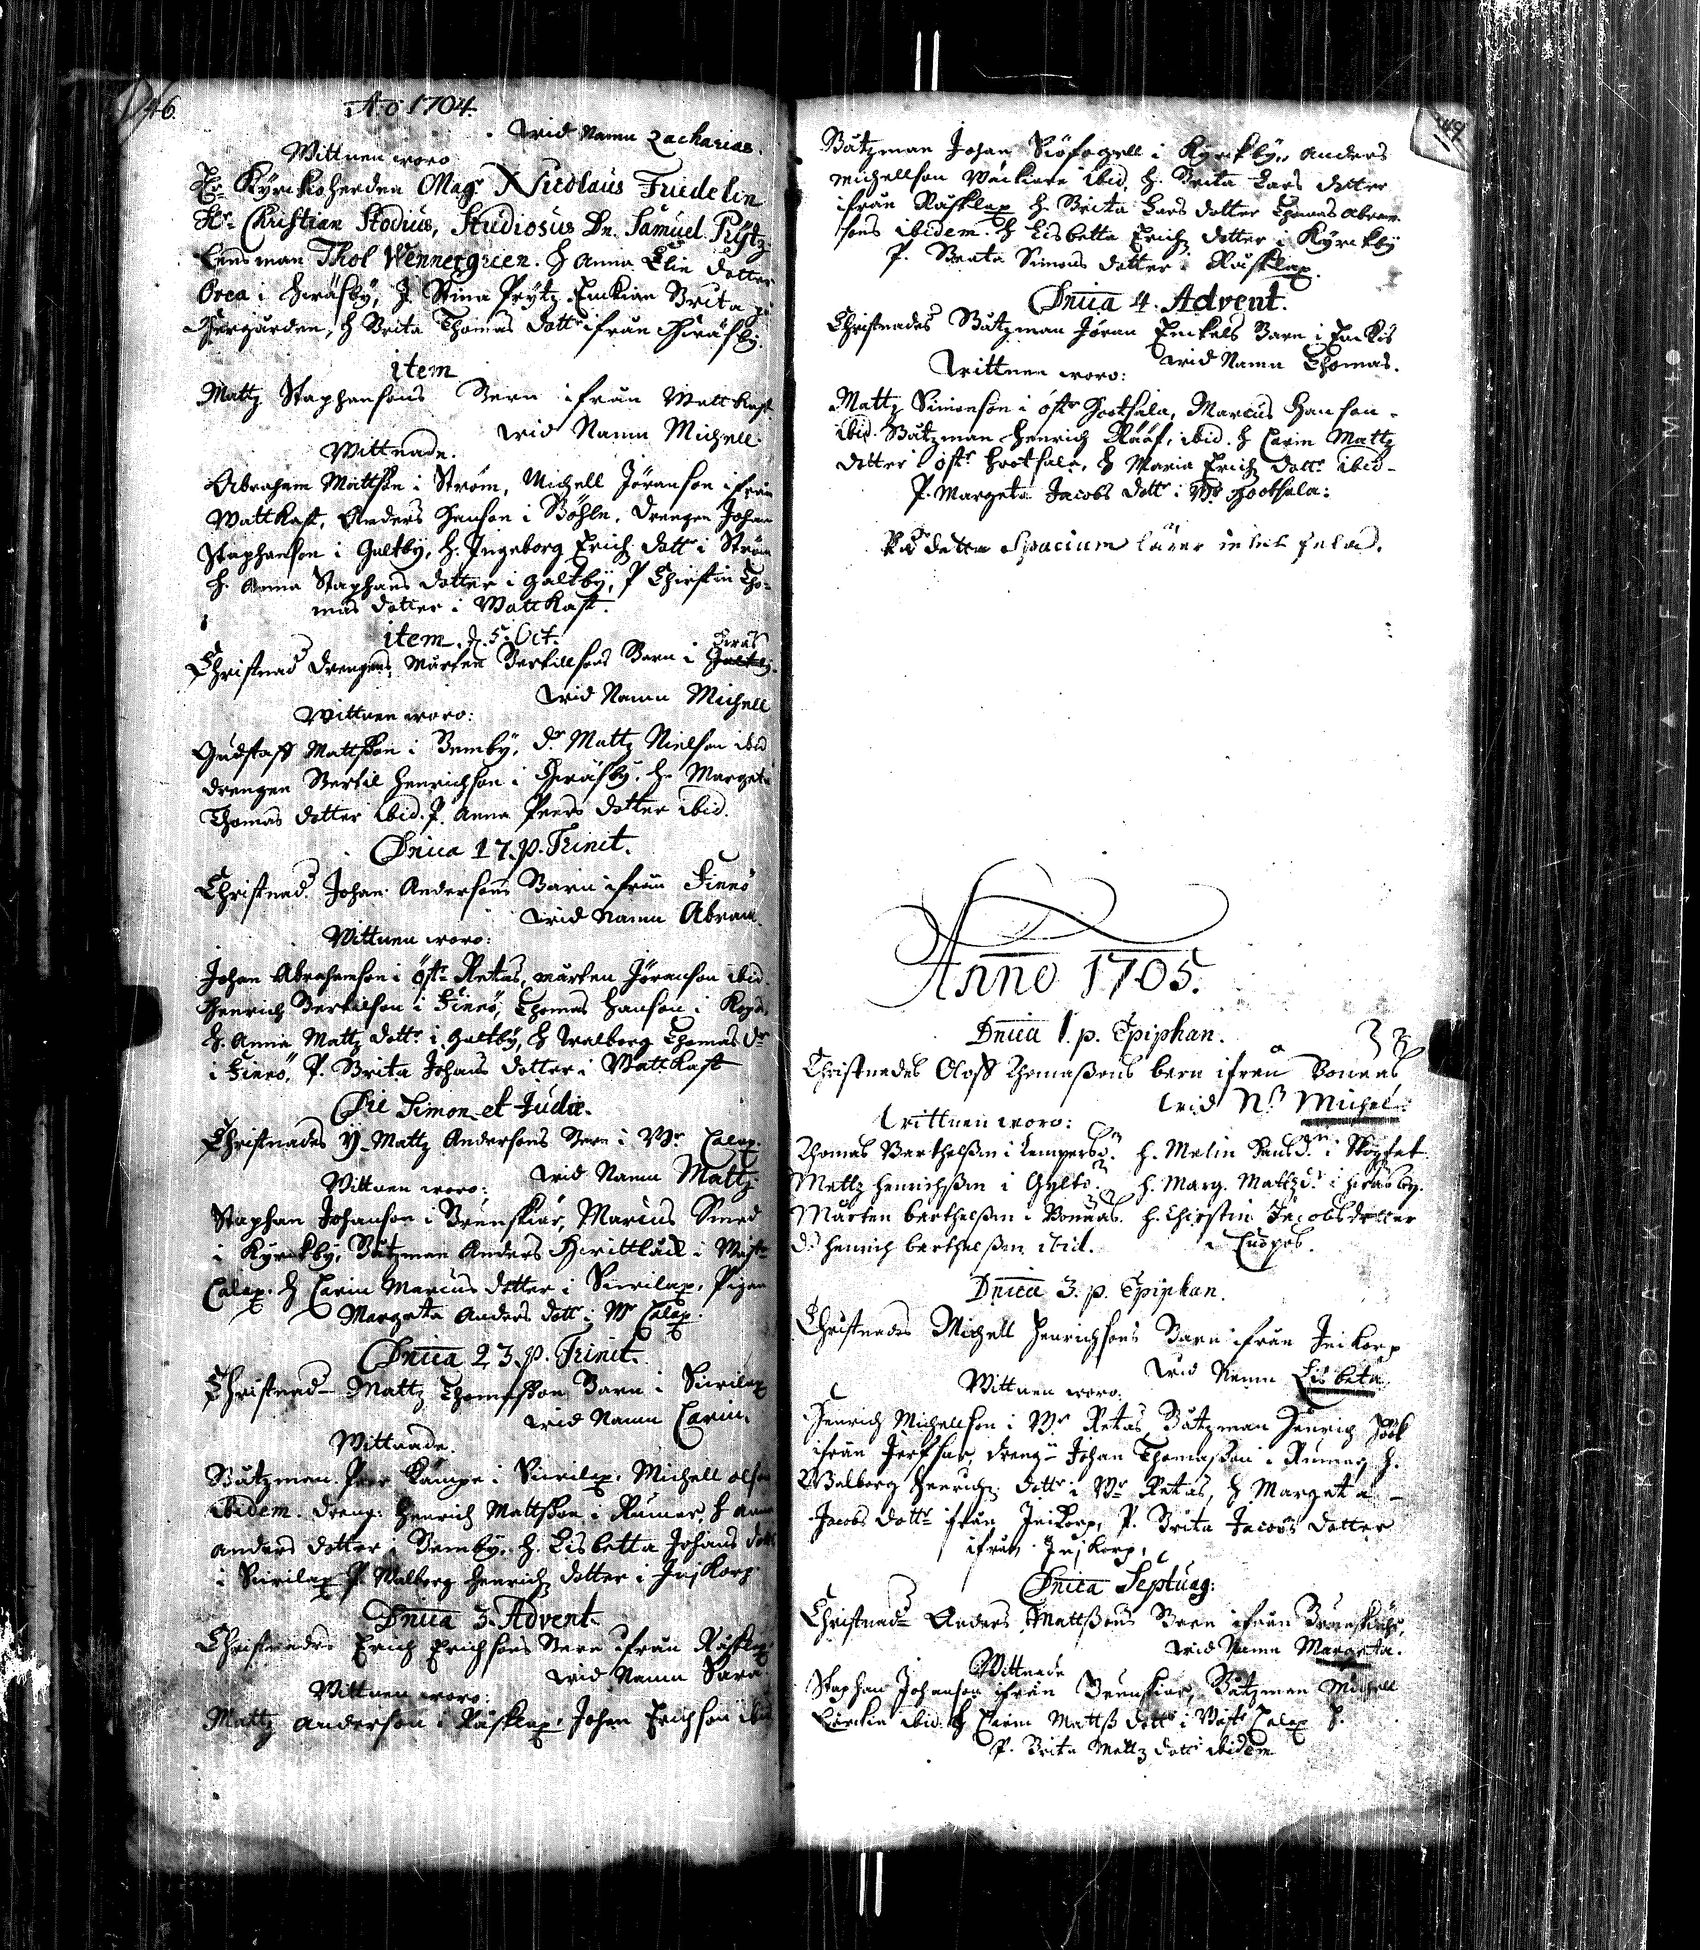 146.
Ao 1704.
wid Namn Zacharias.
Wittnen woro
Hr Kÿrckioherden Mag. Nicolaus Fridelin
Hr Christian Stodius, Studiosus Dn. Samuel Prÿtz
Lensman Thol Wennergreen. H Anna Elie dotter
i Heräsbÿ, J. Stina Prÿtz Enckian Brita
H Brita Thomas dott. ifrån Heräsbÿ.
item
Mattz Staphansons Barn ifrån Wattkast
wid Namn Michell.
Wittnade.
Abraham Mattson i Ström, Michell Jöranson ifrån
Wattkast, Anders Hanson i Böhle, drengen Johan
Staphanson i Galtbÿ, H. Ingeborg Erichz dott. i Ström
H. Anna Staphans dotter i Galtbÿ, P Chirstin Tho-
mas dotter i Wattkast.
item d. 5. Oct.
Christnad drengens Mårten Bertillsons Barn i
wid Namn Michell
Wittnen woro:
Gustaff Mattsson i Bembÿ, dr. Mattz Nielson ibid
drengen Bertil Henrichson i Heräsbÿ. H. Margeta
Thomas dotter ibid. P. Anna Peers dotter ibid.
Dnica 17. p. Trinit.
Christnad. Johan Andersons Barn ifrån Finnö
wid Namn Abram.
Wittnen woro:
Johan Abrahamson i öst. Retas, Mårten Jöranson ibid.
Henrich Bertilson i Finnö, Thomas Hanson i
H. Anna Mattz dott. i Galtbÿ, H Walborg Thomas dr
i Finnö. P. Brita Johans dotter i Wattkast
Die Simon et Judæ.
Christnades Mattz Andersons Barn i Wr Calax.
wid Namn Mattz
Wittnen woro:
Staphan Johanson i Brunskiär, Marcus Smed
i Kÿrckbÿ, Båtzman Anders i Wäst.
Calax. H Carin Marcus dotter i Siwilax, Pigan
Margeta Anders dott. i Wr Calax.
Dnica 23. p. Trinit.
Christnad Mattz Thomasson Barn i Siwilax
wid Namn Carin.
Wittnade.
Båtzman Peer Kämpe i Siwilax, Michell olson
ibidem. dreng: Henrich Mattsson i Rumar, H
anders dotter i Bembÿ. H. Lisbetta Johans dott
i Siwilax P. Walborg Henrichz dotter i
Dnica 3. Advent.
Christnades Erich Erichsons Barn ifrån Råsklax
wid Namn Sara
Wittnen woro:
Mattz anderson i Råsklax, Johan Erichson ibid
Båtzman Johan Siöfogell i Kÿrckbÿ, Anders
Michellson ibid, H. Brita Lars dotter
ifrån Råsklax H. Brita Lars dotter Thomas Abram
sons ibidem. H Lisbetta Erichz dotter i Kÿrckbÿ
P. Beata Simons dotter i Råsklax.
Dnica 4. Advent.
Christnades Båtzman Jöran Enkels Barn i
wid Namn Thomas.
Wittnen woro:
Mattz Simonson i öst. Hoothala, Marcus Hanson
ibid. Båtzman Henrich Rääf, ibid. H Carin Mattz
dotter i öst. Hoothala, H Maria Erichz dott. ibid.
P. Margeta Jacobs dott. i Wr Hoothala:
På detta Spacium lärer intet felas.
Anno 1705.
Dnica 1. p. Epiphan.
Christnades Oloff Thomaßons barn ifrån Bonäs
wid N. Michel.
Wittnen woro:
Thomas Barthelßon i H. Malin i
Mattz Henrichßon i Gÿlto. H. Marg. Mattzd. i Heråsbÿ.
Mårten Barthelßon i Bonäs. H. Chirstin Jacobsdotter
d. Henrich Barthelßon ibid.
Dnica 3. p. Epiphan.
Christnades Michell Henrichsons Barn ifrån
wid Namn Lisbeta
Wittnen woro:
Henrich Michellson i Wr Retas, Båtzman Henrich
ifrån dreng Johan Thomaßon i Rumar, H.
Walborg Henrichz dotter i Wr Retas, H Margeta
Jacobs dott. ifrån P. Brita Jacobs dotter
ifrån
Dnica Septuag:
Christnad Anders Mattßons Barn ifrån
wid Namn Margeta.
Wittnade
Staphan Johanson ifrån Brunskiär, Båtzman Michell
ibid. H Carin Mattß dott. i Wäst. Calax
P. Brita Mattz dott. ibidem